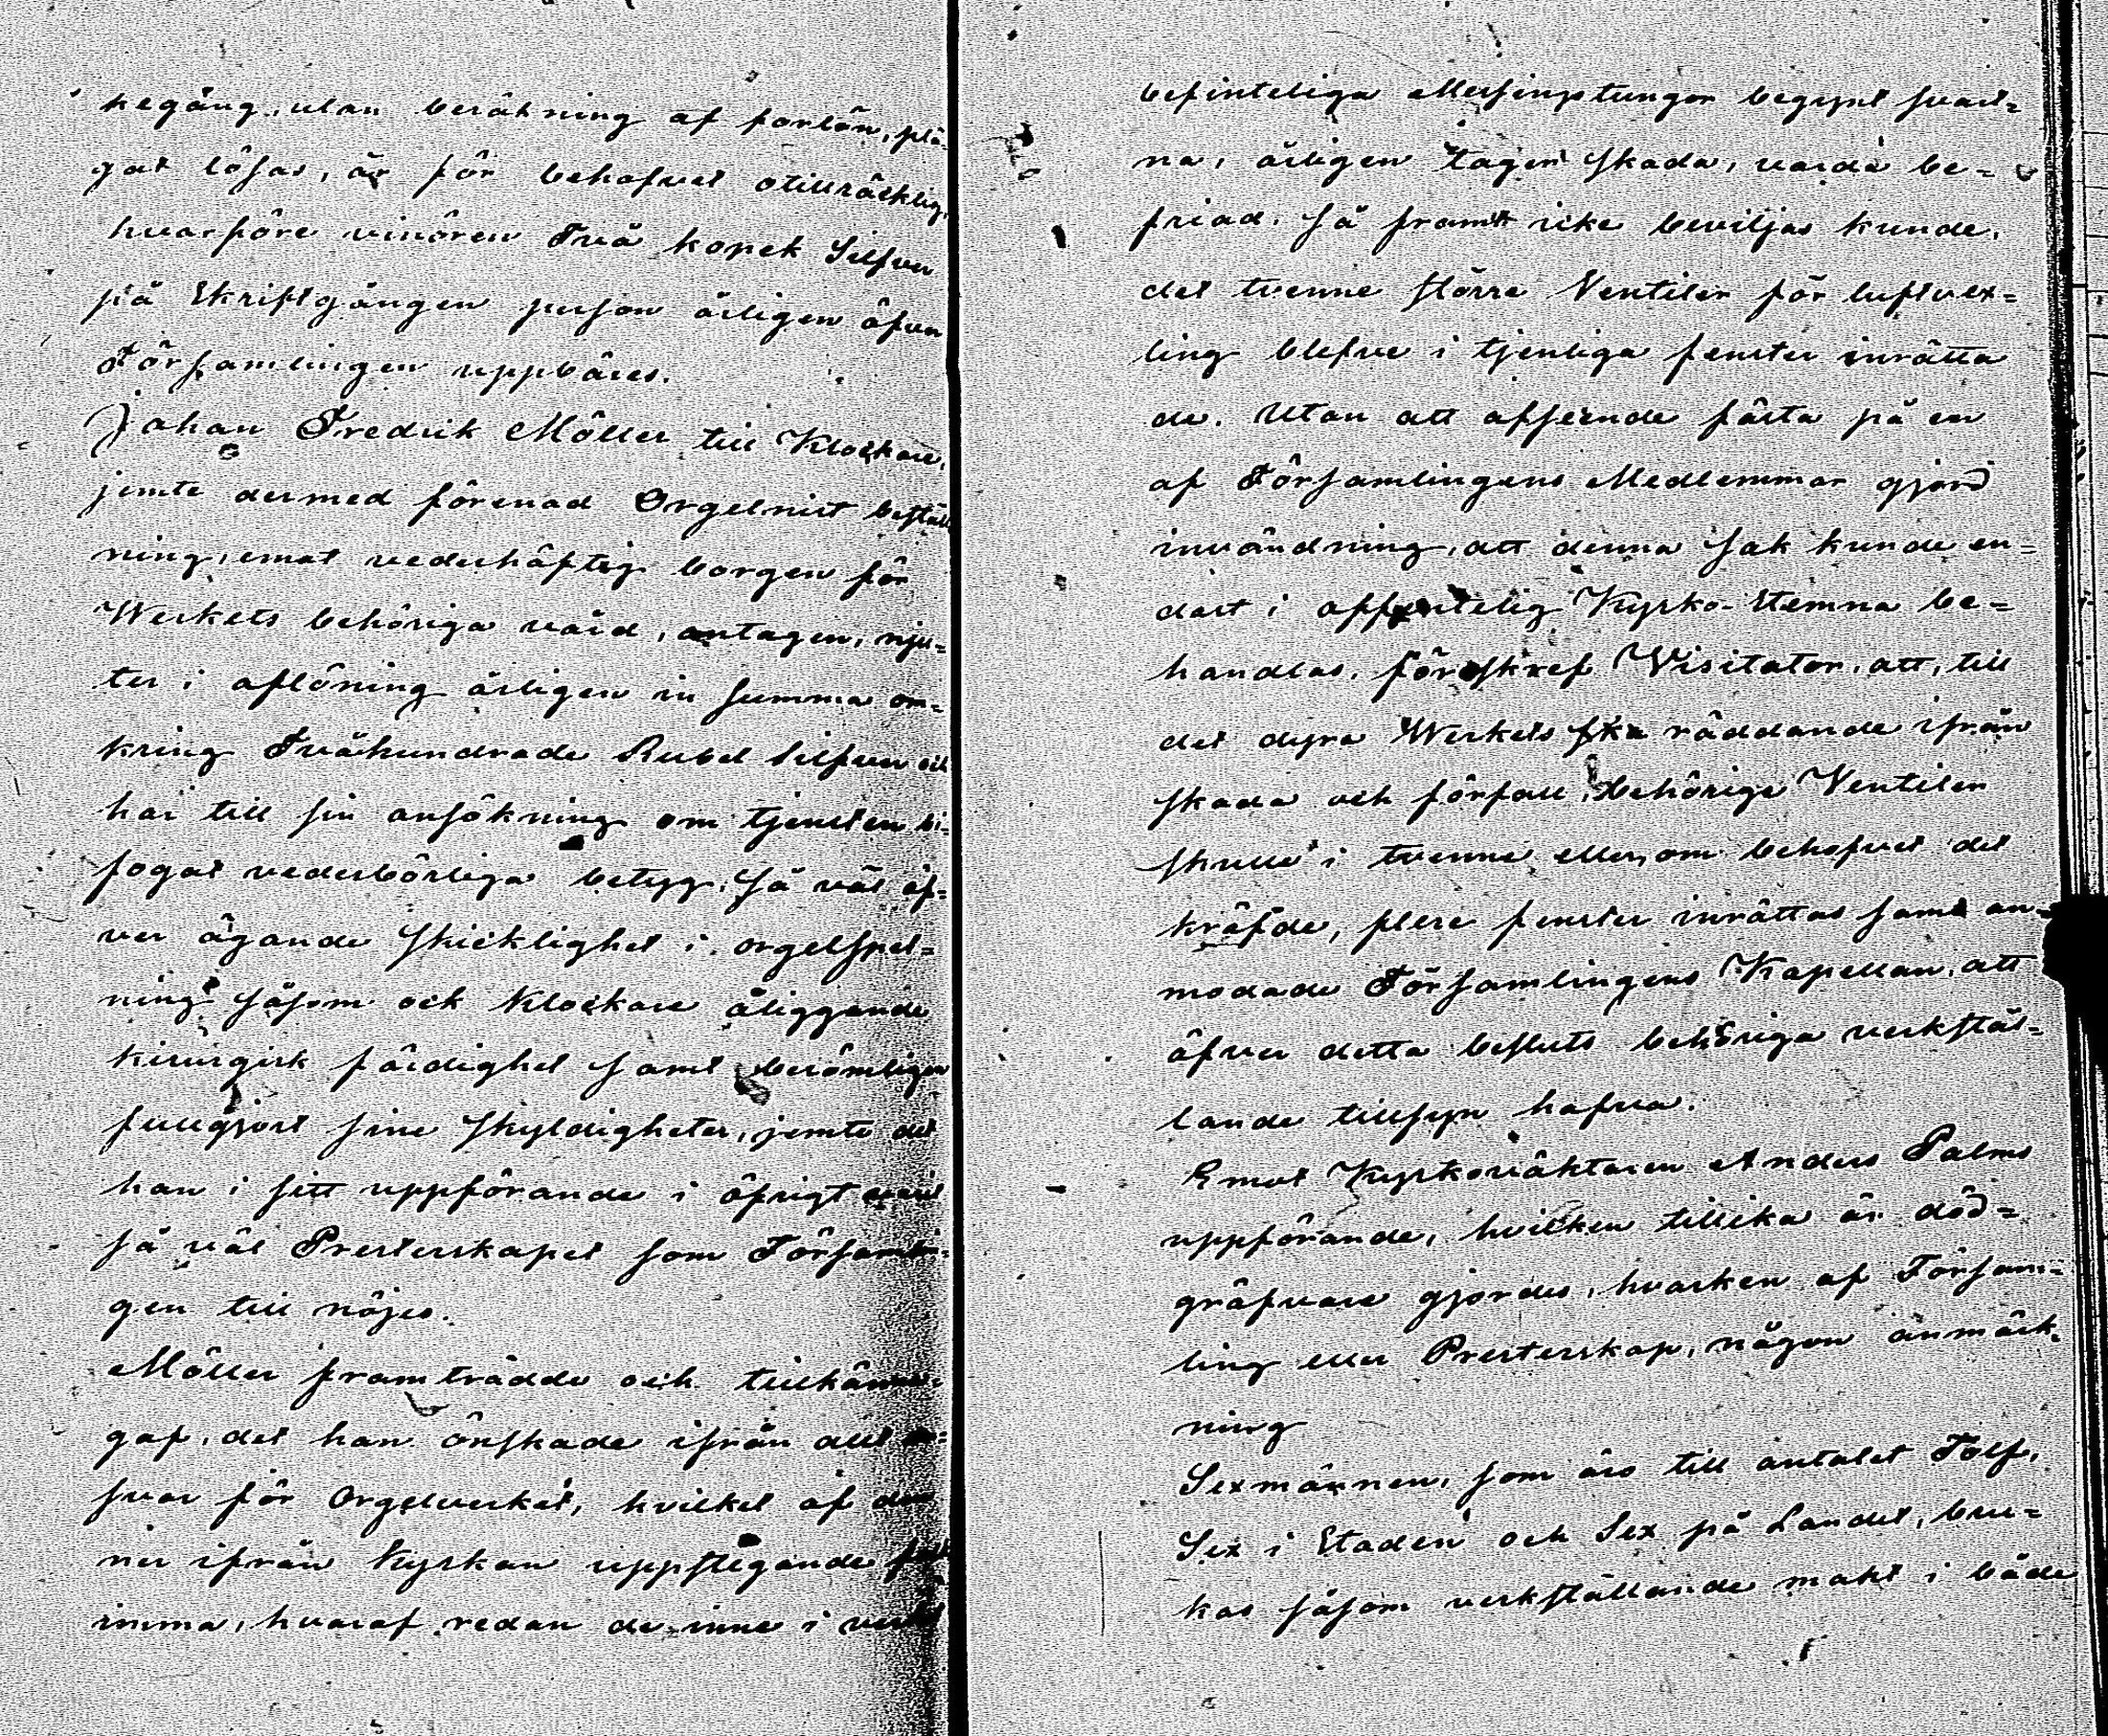 kegång, utan beräkning af forlön, plä-
gat lösas, är för behofvet otillräcklig,
hvarföre vinören Två kopek Silfver
på Skriftgången person årligen åfvan
Församlingen uppbäres.
Johan Fredrik Möller till Klockare,
jemte dermed förenad Orgelnist beställ
ning, emot vederhäftig borgen för
Werkets behöriga vård, antagen, nju-
ter i aflöning årligen in summa om-
kring Tvåhundrade Rubel Silfver och
har till sin ansökning om tjensten bi-
fogat vederbörliga betyg, så väl öf-
ver ägande skicklighet i orgelspel-
ning såsom ock Klockare åliggande
kirurgisk färdighet samt berömligen
fullgjort sine skyldigheter, jemte det
han i sitt uppförande i öfrigt varit
så väl Presterskapet som Församlin-
gen till nöjes.
Möller framträdde och tillkänna-
gaf, det han önskade ifrån allt an-
svar för Orgelverket, hvilket af den
ner ifrån Kyrkan uppstigande
imma, hvaraf redan de inne i verket
befinteliga Messingstungor begynt svart-
na, årligen tager skada, varda be-
friad. så framt icke beviljas kunde,
det tvenne större Ventiler för luftvex-
ling blefve i tjenliga fenster inrätta
de. Utan att afseende fästa på en
af Församlingens Medlemmar gjord
invändning, att denna sak kunde en-
dast i offentelig Kyrko-Stemna be-
handlas, föreskref Visitator, att, till
det dyra Werkets räddande ifrån
skada och förfall, behörige Ventiler
skulle i tvenne eller, om behofvet det
kräfde, flere fenster inrättas samt an-
modade Församlingens Kapellan, att
öfver detta besluts behöriga verkstäl-
lande tillsyn hafva.
Emot Kyrkoväktaren Anders Palms
uppförande, hvilken tillika är död-
gräfvare gjordes, hvarken af Försam-
ling eller Presterskap, någon anmärk-
ning
Sexmännen, som äro till antalet Tolf,
Sex i Staden och Sex på Landet, bru-
kas såsom verkställande makt i både